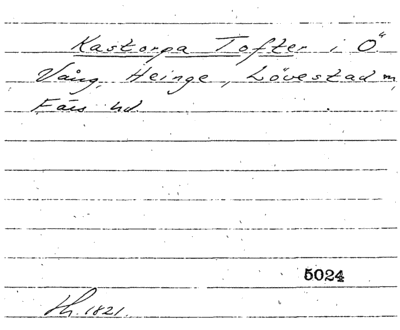 Kastorpa Tofter i Ö.
Vång, Heinge, Lövestad m,
Färs hd.
5024
Lh. 1821.